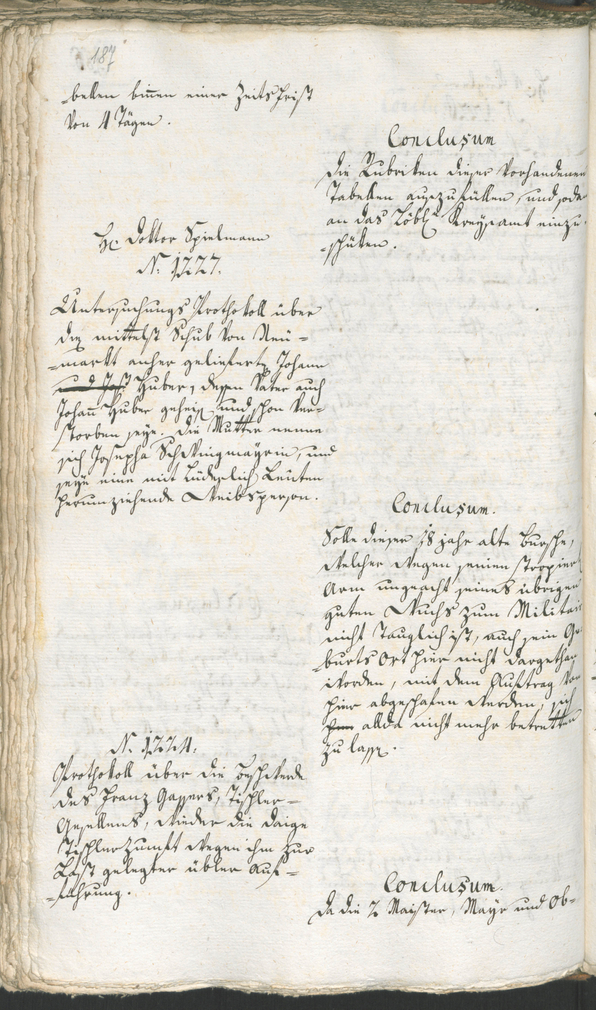 187
bellen binnen einer Zeitsfrist
von 4 Tägen.
Conclusum
Die Rubriken dieser vorhandenen
Tabellen auszufüllen, und soda
an das Löbl Kreysamt einzu-
-schüken.
Hc Doktor Spielmann
N. 1227.
Untersuchungs Prothokoll über
die mittelst Schub von Neu-
-markt anher gelieferte Johann
Huber, dessen Vater auch
Johann Huber geheiß und schon ver-
storben seye. Die Mutter nenne
sich Josepha Schwingmayrin, und
seye eine mit Lüderlich Leuten
herumziehende Weibsperson.
Conclusum.
Solle dieser 18 jahr alte Bursche,
welcher wegen seinen stropier
Arm ungeacht seines übrigen
guten Wuchs zum Militair
nicht tauglich ist, auch sein Ge-
burts Ort hier nicht dargethan
worden, mit dem Auftrag von
hier abgeschafen werden, sich
allda nicht mehr betretten
zu lassen.
N. 1224.
Prothokoll über die Beschwerde
des Franz Gassers, Tischler-
Gesellens, wieder die daige
Tischlerzunft wegen ihm zur
Last gelegter übler Auf-
-führung.
Conclusum.
Da die 2 Maister, Mayr und Ob-